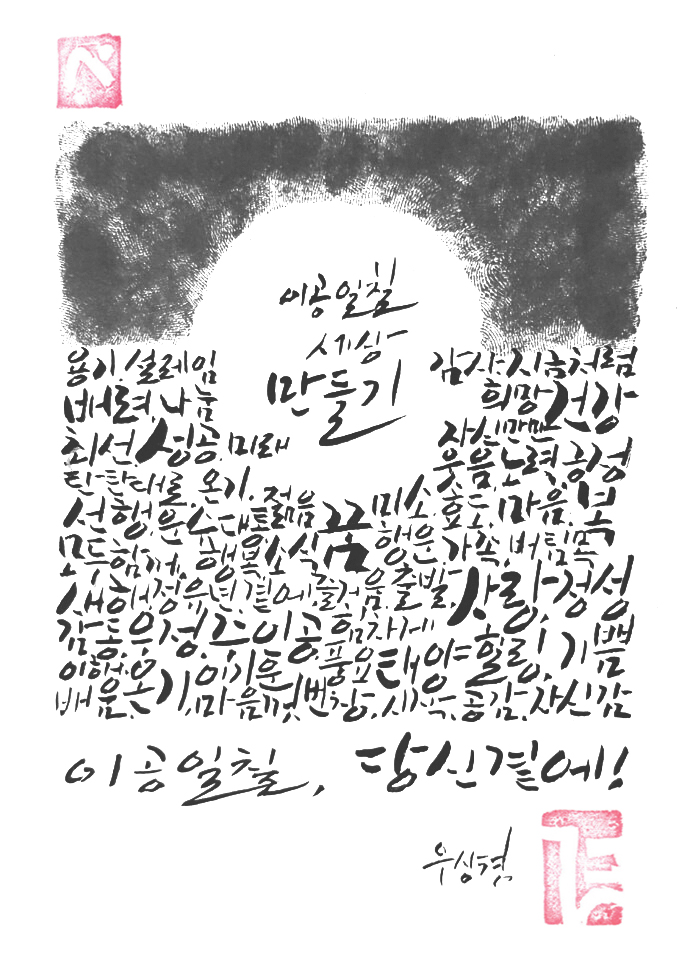 이공일칠
세상
만들기
용기.설레임
배려.나눔
최선.성공.미래
탄탄대로.온기.젊음
감사.지금처럼
희망.건강
자신만만
웃음.노력.긍정
선행.운수대통.꿈.미소.효도.마음.복
모두함께.행복.소식.행운.가족.버팀목
새해.정유년.곁에.즐거움.출발.사랑.정성
감동.우정.주이공.힘차게
이해.온기.이기운.풍요.태양.힐링.기쁨
배움.마음껏.번창.시작.공감.자신감
이공일칠, 당신곁에!
우상현